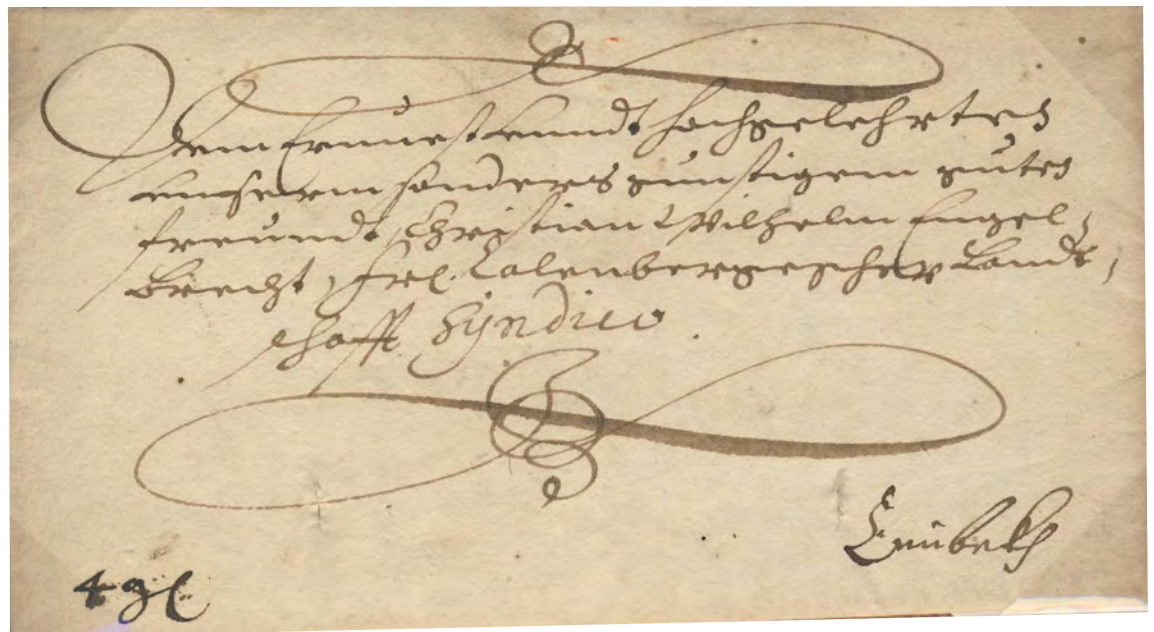 Dem Ernuest vnndt hochgelehrten
vnserm sonders gunstigem guten
freundt, Christian Wilhelm Engel,
Brecht, frl. Calenbergescher Landt,
schafft Syndico
Einbekh